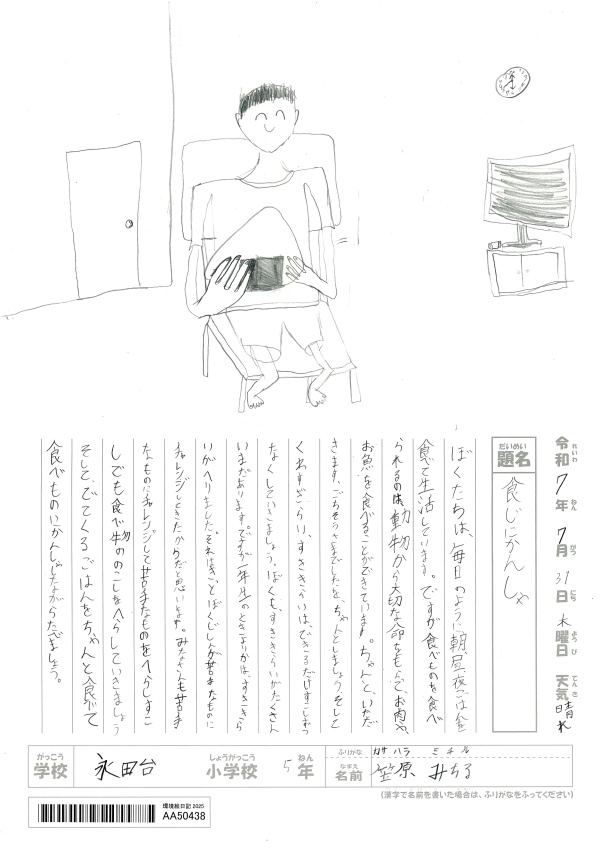 令和 7年 7月 31日 木曜日 天気 晴れ
れいわ ねん がつ にち ようび てんき
だいめい
題名 食じにかんしゃ
ぼくたちは、毎日のように朝、昼、夜ごはんを
食べて生活しています。ですが食べものを食べ
られるのは、動物から大切な命をもらって、お肉や、
お魚を食べることができています。ちゃんと、いただ
きます、ごちそうさまでしたを、ちゃんとしましょう。そして
くわずぎらい、すききらいは、できるだけすこしずつ
なくしていきましょう。ぼくも、すききらいがたくさん
いまだあります。ですが一年生のときよりかは、すききら
いがへりました。それはきっとぼくじしんが苦手なものに
チャレンジしてきたからだと思います。みなさんも苦手
なものにチャレンジして苦手なものをへらしすこ
しでも食べ物ののこしをへらしていきましょう
そして、でてくるごはんをちゃんと食べて
食べものにかんしゃしながらたべましょう。
がっこう しょうがっこう ねん ふりがな カサハラ ミチル
学校 永田台 小学校 5年 なまえ 名前 笠原 みちる
(漢字で名前を書いた場合は、ふりがなをふってください)
環境絵日記 2025
AA50438